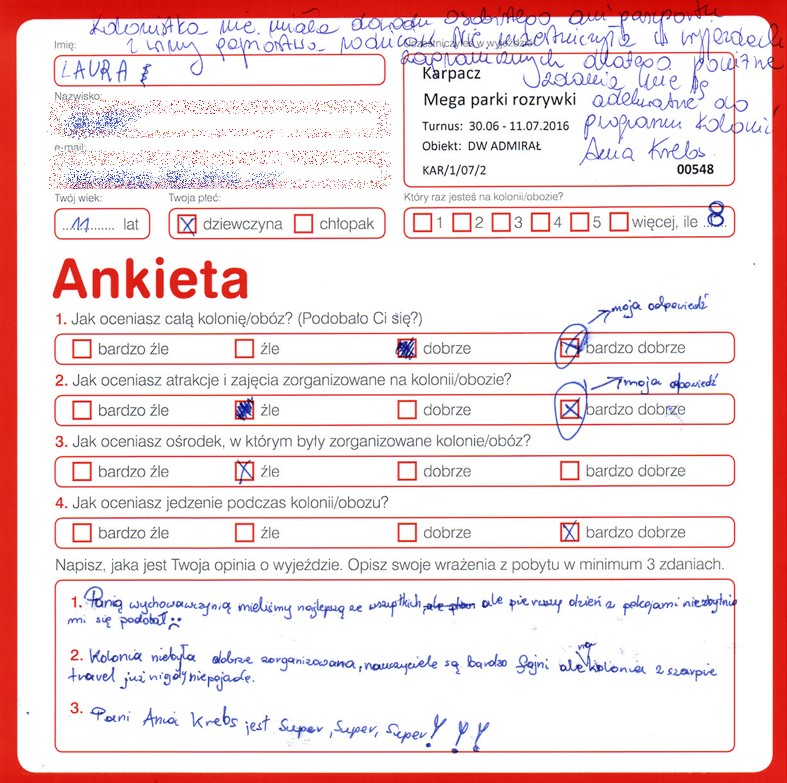 Kolonistka nie miała dowodu osobistego ani paszportu
z winy pojmostwa rodziców. Nie uczestniczyła w wyjazdach
zagranicznych dlatego powyższe
zdania nie są
adekwatne do
programu kolonii
Ania Krebs
Imię:
LAURA
Uczestniczyłeś w wyjeździe:
Karpacz
Mega parki rozrywki
Turnus: 30.06 - 11.07.2016
Obiekt: DW ADMIRAŁ
KAR/1/07/2 00548
Nazwisko:
e-mail:
Twój wiek: Twoja płeć: Który raz jesteś na kolonii/obozie?
...11........ lat dziewczyna chłopak 1 2 3 4 5 więcej, ile ...8
Ankieta
1. Jak oceniasz całą kolonię/obóz? (Podobało Ci się?) → moja odpowiedź
bardzo źle źle dobrze bardzo dobrze
2. Jak oceniasz atrakcje i zajęcia zorganizowane na kolonii/obozie? → moja opowiedź
bardzo źle źle dobrze bardzo dobrze
3. Jak oceniasz ośrodek, w którym były zorganizowane kolonie/obóz?
bardzo źle źle dobrze bardzo dobrze
4. Jak oceniasz jedzenie podczas kolonii/obozu?
bardzo źle źle dobrze bardzo dobrze
Napisz, jaka jest Twoja opinia o wyjeździe. Opisz swoje wrażenia z pobytu w minimum 3 zdaniach.
1. Panią wychowawczynią mieliśmy najlepszą ze wszystkich, ale pierwszy dzień z pokojami niezbytnio
mi się podobał :(
2. Kolonia niebyła dobrze zorganizowana, nauczyciele są bardzo fajni ale na kolonia z szarpie
travel już nigdy niepojade.
3. Pani Ania Krebs jest super, super, super! ! !